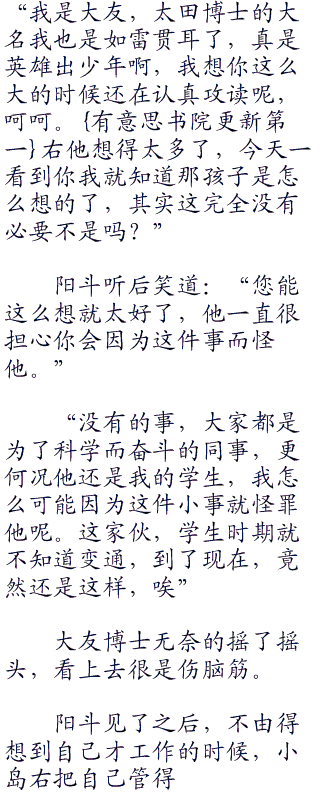 “我是大友，太田博士的大
名我也是如雷贯耳了，真是
英雄出少年啊，我想你这么
大的时候还在认真攻读呢，
呵呵。{有意思书院更新第
一}右他想得太多了，今天一
看到你我就知道那孩子是怎
么想的了，其实这完全没有
必要不是吗？”
阳斗听后笑道：“您能
这么想就太好了，他一直很
担心你会因为这件事而怪
他。”
“没有的事，大家都是
为了科学而奋斗的同事，更
何况他还是我的学生，我怎
么可能因为这件小事就怪罪
他呢。这家伙，学生时期就
不知道变通，到了现在，竟
然还是这样，唉”
大友博士无奈的摇了摇
头，看上去很是伤脑筋。
阳斗见了之后，不由得
想到自己才工作的时候，小
岛右把自己管得